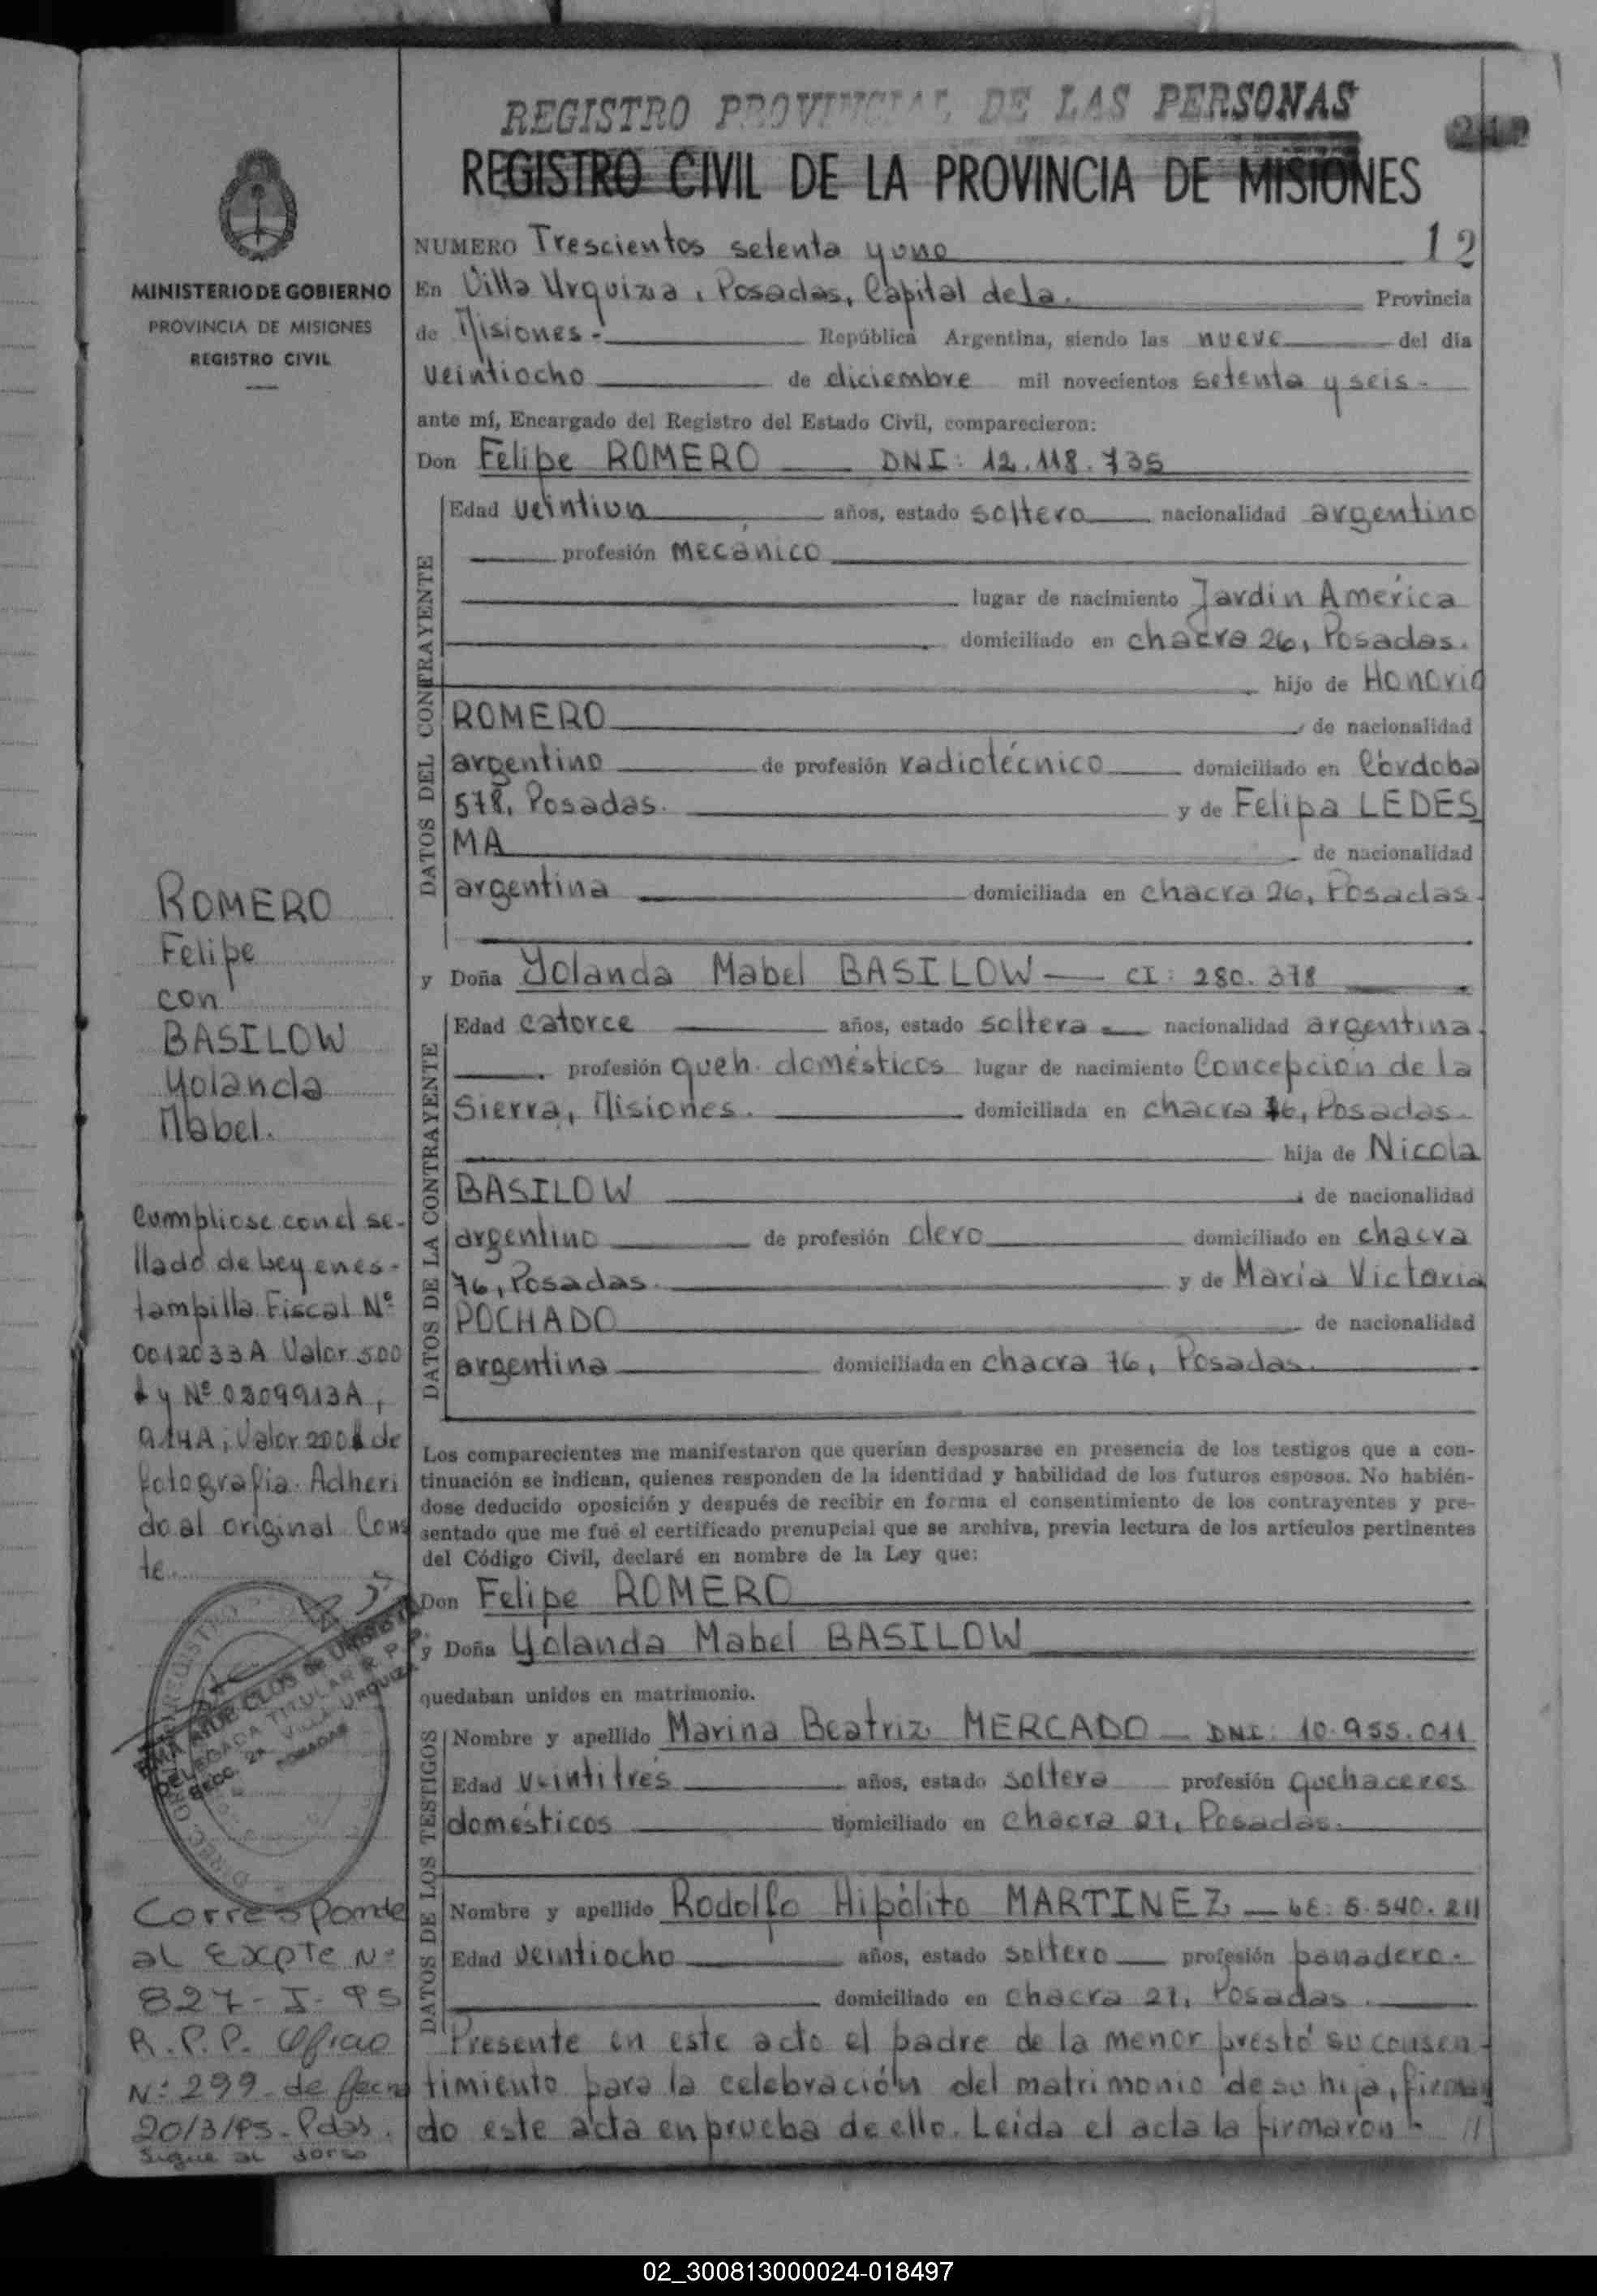 REGISTRO PROVINCIAL DE LAS PERSONAS
REGISTRO CIVIL DE LA PROVINCIA DE MISIONES
MINISTERIO DE GOBIERNO
PROVINCIA DE MISIONES
REGISTRO CIVIL
NUMERO Trescientos setenta y uno 12
En Villa Urquiza, Posadas, Capital de la Provincia
de Misiones.- República Argentina, siendo las nueve del día
veintiocho de diciembre mil novecientos setenta y seis.-
ante mí, Encargado del Registro del Estado Civil, comparecieron:
Don Felipe ROMERO DNI: 12.118.735
DATOS DEL CONTRAYENTE
Edad veintiun años, estado soltero nacionalidad argentino
profesión mecánico
lugar de nacimiento Jardin América
domiciliado en chacra 26, Posadas.
hijo de Honorio
ROMERO de nacionalidad
argentino de profesión radiotécnico domiciliado en Córdoba
578, Posadas. y de Felipa LEDES
MA de nacionalidad
argentina domiciliada en chacra 26, Posadas.
y Doña Yolanda Mabel BASILOW CI: 280.378
DATOS DE LA CONTRAYENTE
Edad catorce años, estado soltera nacionalidad argentina.
profesión queh. domésticos lugar de nacimiento Concepción de la
Sierra, Misiones. domiciliada en chacra 76, Posadas.
hija de Nicola
BASILOW de nacionalidad
argentino de profesión olero domiciliado en chacra
76, Posadas. y de María Victoria
POCHADO de nacionalidad
argentina domiciliada en chacra 76, Posadas.
Los comparecientes me manifestaron que querían desposarse en presencia de los testigos que a con-
tinuación se indican, quienes responden de la identidad y habilidad de los futuros esposos. No habién-
dose deducido oposición y después de recibir en forma el consentimiento de los contrayentes y pre-
sentado que me fué el certificado prenupcial que se archiva, previa lectura de los artículos pertinentes
del Código Civil, declaré en nombre de la Ley que:
Don Felipe ROMERO
y Doña Yolanda Mabel BASILOW
quedaban unidos en matrimonio.
DATOS DE LOS TESTIGOS
Nombre y apellido Marina Beatriz MERCADO DNI: 10.955.011
Edad veintitrés años, estado soltera profesión quehaceres
domésticos domiciliado en chacra 21, Posadas.
Nombre y apellido Rodolfo Hipólito MARTINEZ LE: 5.540.211
Edad veintiocho años, estado soltero profesión panadero.-
domiciliado en chacra 21, Posadas.
Presente en este acto el padre de la menor prestó su consen-
timiento para la celebración del matrimonio de su hija, firman
do este acta en prueba de ello. Leida el acta la firmaron.- //
ROMERO
Felipe
con
BASILOW
Yolanda
Mabel.
Cumpliose con el se-
llado de Ley en es-
tampilla Fiscal Nº
0012033A Valor 500
y Nº 0209913A,
914A; Valor 200$ de
fotografia. Adheri
do al original. Cons
te.
DELEGADA TITULAR R. P. P.
SECC. 2a. VILLA URQUIZA
POSADAS
Corresponde
al Expte Nº
827-I-95
R.P.P. Oficio
Nº 299 de fecha
20/3/95.- Pdas.
Sigue al dorso
02_300813000024-018497